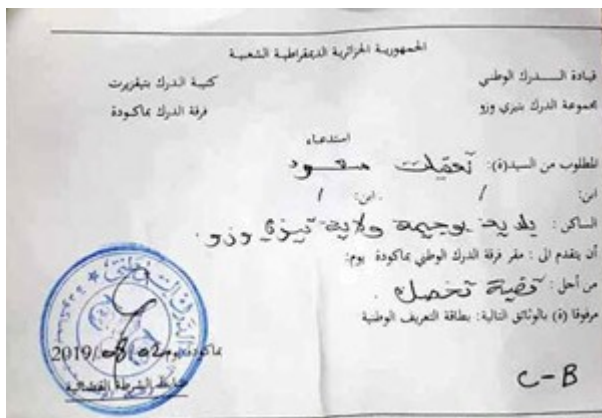 الجمهورية الجزائرية الديمقراطية الشعبية
قيادة الــدرك الوطني
كتيبة الدرك بتيقزيرت
مجموعة الدرك بتيزي وزو
فرقة الدرك بماكودة
استدعاء
المطلوب من السيد(ة): مسعود
ابن: / ابن: /
الساكن: بلدية بوجيمة ولاية تيزي وزو.
أن يتقدم الى: مقر فرقة الدرك الوطني بماكودة يوم:
من أجل: قضية تخصك.
مرفوقا (ة) بالوثائق التالية: بطاقة التعريف الوطنية
بماكودة يوم 2019/08/02
ضابط الشرطة القضائية
C-B